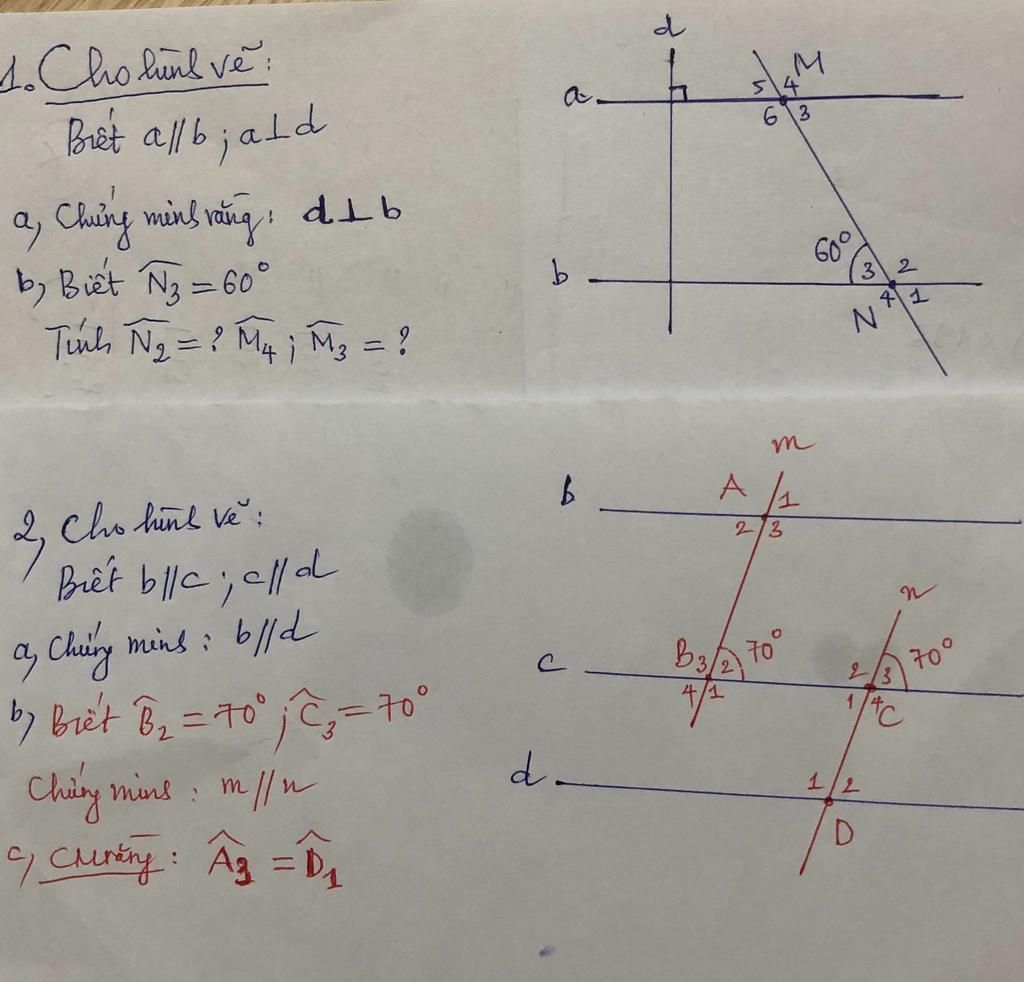 1. Cho hình vẽ:
Biết a//b ; a⊥d
a, Chứng minh rằng: d⊥b
b, Biết N̂₃ = 60°
Tính N̂₂ = ? M̂₄ ; M̂₃ = ?
d
a
5 4 M
6 3
60°
b
3 2
4 1
N
2, Cho hình vẽ:
Biết b//c ; c//d
a, Chứng minh : b//d
b, Biết B̂₂ = 70° ; Ĉ₃ = 70°
Chứng minh : m//n
c, CM rằng : Â₃ = D̂₁
m
b
A 1
2 3
n
c
B 3 2 70°
4 1
2 3 70°
1 4 C
d
1 2
D